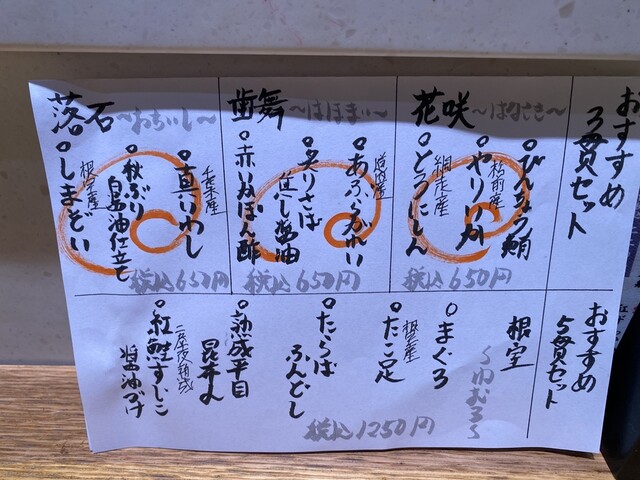 おすすめ
3貫セット
花咲
〜はなさき〜
びんちょう鮪
松前産
やりいか
網走産
とろにしん
税込650円
歯舞
〜はぼまい〜
道内産
あぶらかれい
炙りさば
焦し醤油
赤いかぽん酢
税込650円
落石
〜おちいし〜
千葉産
真いわし
秋ぶり
白醤油仕立て
根室産
しまぞい
税込650円
おすすめ
5貫セット
根室
〜ねむろ〜
まぐろ
根室産
たこ足
たらば
ふんどし
熟成平目
昆布〆
二昼夜熟成
紅鮭すじこ
醤油づけ
税込1250円